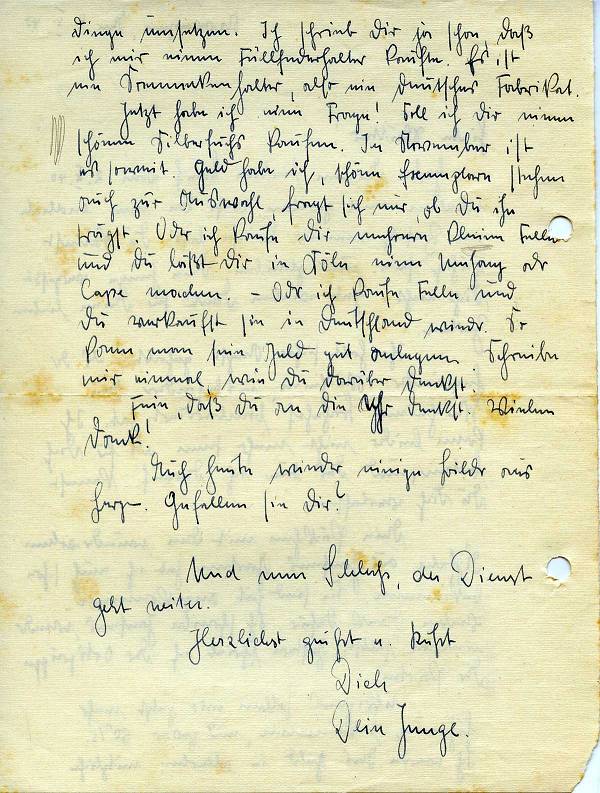 Dinge umsetzen. Ich schrieb Dir ja schon, daß
ich mir einen Füllfederhalter kaufte. Es ist
ein Soennekenhalter, also ein deutsches Fabrikat.
Jetzt habe ich eine Frage! Soll ich Dir einen
schönen Silberfuchs kaufen. In Norwegen ist
es soweit. Geld habe ich, schöne Exemplare stehen
auch zur Auswahl, fragt sich nur, ob Du ihn
trägst. Oder ich kaufe Dir mehrere kleine Felle
und Du läßt Dir in Köln einen Umhang oder
Cape machen. – Oder ich kaufe Felle und
Du verkaufst sie in Deutschland wieder. So
kann man sein Geld gut anlegen. Schreibe
mir einmal, wie Du darüber denkst.
Fein, daß Du an die Uhr denkst. Vielen
Dank!
Auch heute wieder einige Bilder aus
. Gefallen sie Dir?
Und nun Schluß, der Dienst
geht weiter.
Herzlichst grüßt u. küßt
Dich
Dein Junge.